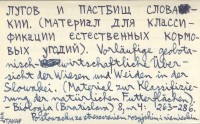 ЛУГОВ И ПАСТБИЩ СЛОВА-
КИИ. (МАТЕРИАЛ ДЛЯ КЛАССИ-
ФИКАЦИИ ЕСТЕСТВЕННЫХ КОРМО-
ВЫХ УГОДИЙ). Vorläufige geobota-
nisch-wirtschaftliche Über-
sicht der Wiesen und Weiden in der
Slowakei. (Material zur Klassifizie-
rung der natürlichen Futterflächen).
- Biológia (Bratislava), 8, n°4: 263-28
rosyjskim i niemieckim